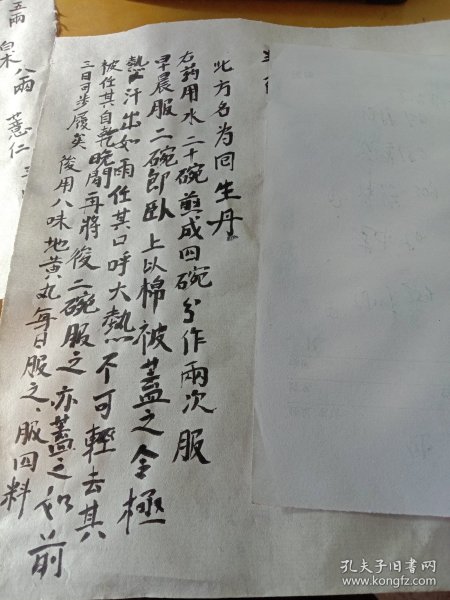 此方名为回生丹
右药用水二十碗煎成四碗分作兩次服
早晨服二碗即卧上以棉被蓋之令極
熱汗出如雨任其口呼大熱不可輕去其
被任其自乾晚間再將後二碗服之亦蓋之如前
三日可步履矣後用八味地黄丸每日服之、服四料
五兩 八兩 薏仁
孔夫子旧书网
www.kongfz.com